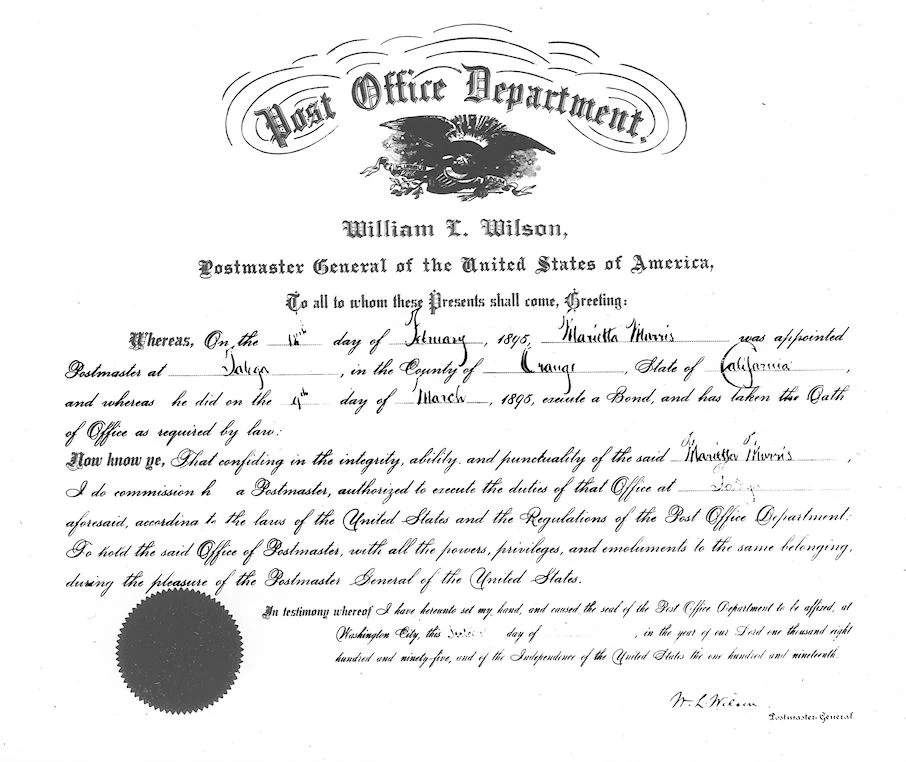 Post Office Department,
William L. Wilson,
Postmaster General of the United States of America,
To all to whom these Presents shall come, Greeting:
Whereas, On the day of February, 1895, Marietta Morris was appointed
Postmaster at , in the County of Orange, State of California,
and whereas he did on the 9th day of March, 1895, execute a Bond, and has taken the Oath
of Office as required by law:
Now know ye, That confiding in the integrity, ability, and punctuality of the said Marietta Morris,
I do commission h a Postmaster, authorized to execute the duties of that Office at
aforesaid, according to the laws of the United States and the Regulations of the Post Office Department:
To hold the said Office of Postmaster, with all the powers, privileges, and emoluments to the same belonging,
during the pleasure of the Postmaster General of the United States.
In testimony whereof I have hereunto set my hand, and caused the seal of the Post Office Department to be affixed, at
Washington City, this day of , in the year of our Lord one thousand eight
hundred and ninety-five, and of the Independence of the United States the one hundred and nineteenth.
W. L. Wilson
Postmaster-General